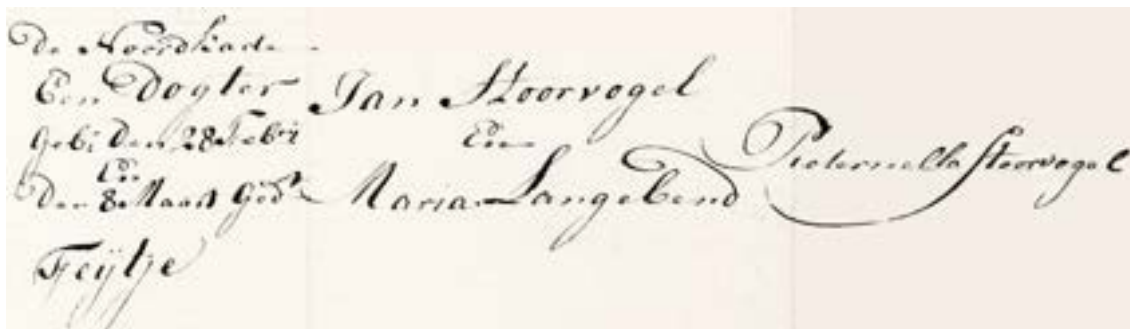 De Noordkade
Een Dogter
Geb: Den 28 Febri
En
Den 8 Maart Gedt
Feijtje
Jan Stoorvogel
En
Maria Langebend
Pieternella Stoorvogel